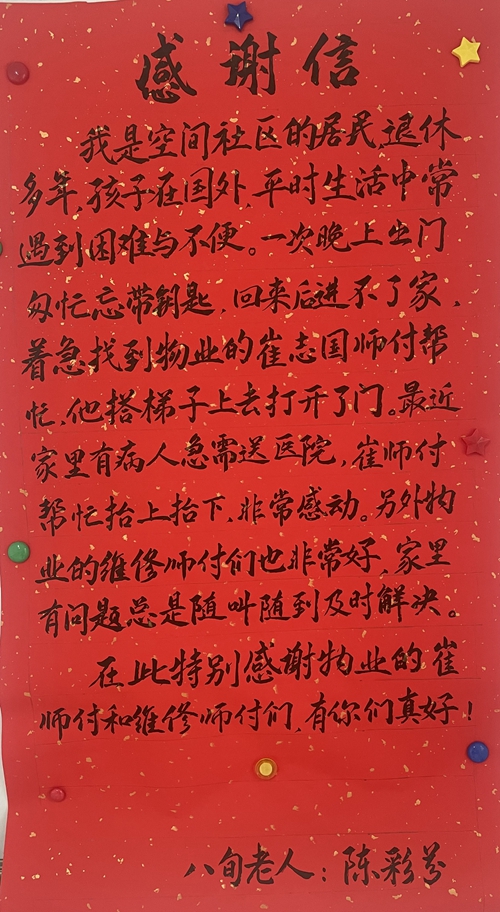 感谢信
我是空间社区的居民,退休
多年,孩子在国外,平时生活中常
遇到困难与不便。一次晚上出门
匆忙忘带钥匙,回来后进不了家,
着急找到物业的崔志国师付帮
忙,他搭梯子上去打开了门。最近
家里有病人急需送医院,崔师付
帮忙抬上抬下,非常感动。另外物
业的维修师付们也非常好,家里
有问题总是随叫随到及时解决。
在此特别感谢物业的崔
师付和维修师付们,有你们真好!
八旬老人:陈彩芬